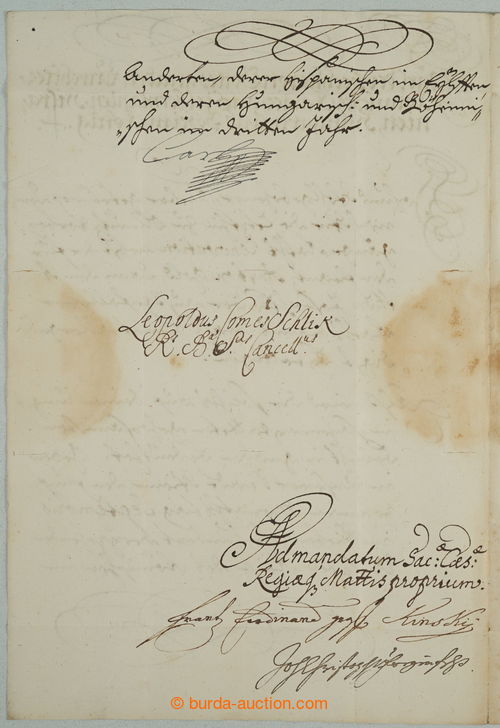 Anderten, derer Hispanischen im Eylfften
und deren Hungarisch: und Böheimi„
„schen im dritten Jahr.
Carl
Leopoldus Comes Schlik
Rs. Bæ. Sus. Cancellus.
Ad mandatum Sac:æ Cæs:æ
Regiæq Mattis proprium.
Frantz Ferdinand Kinsky
© burda-auction.com